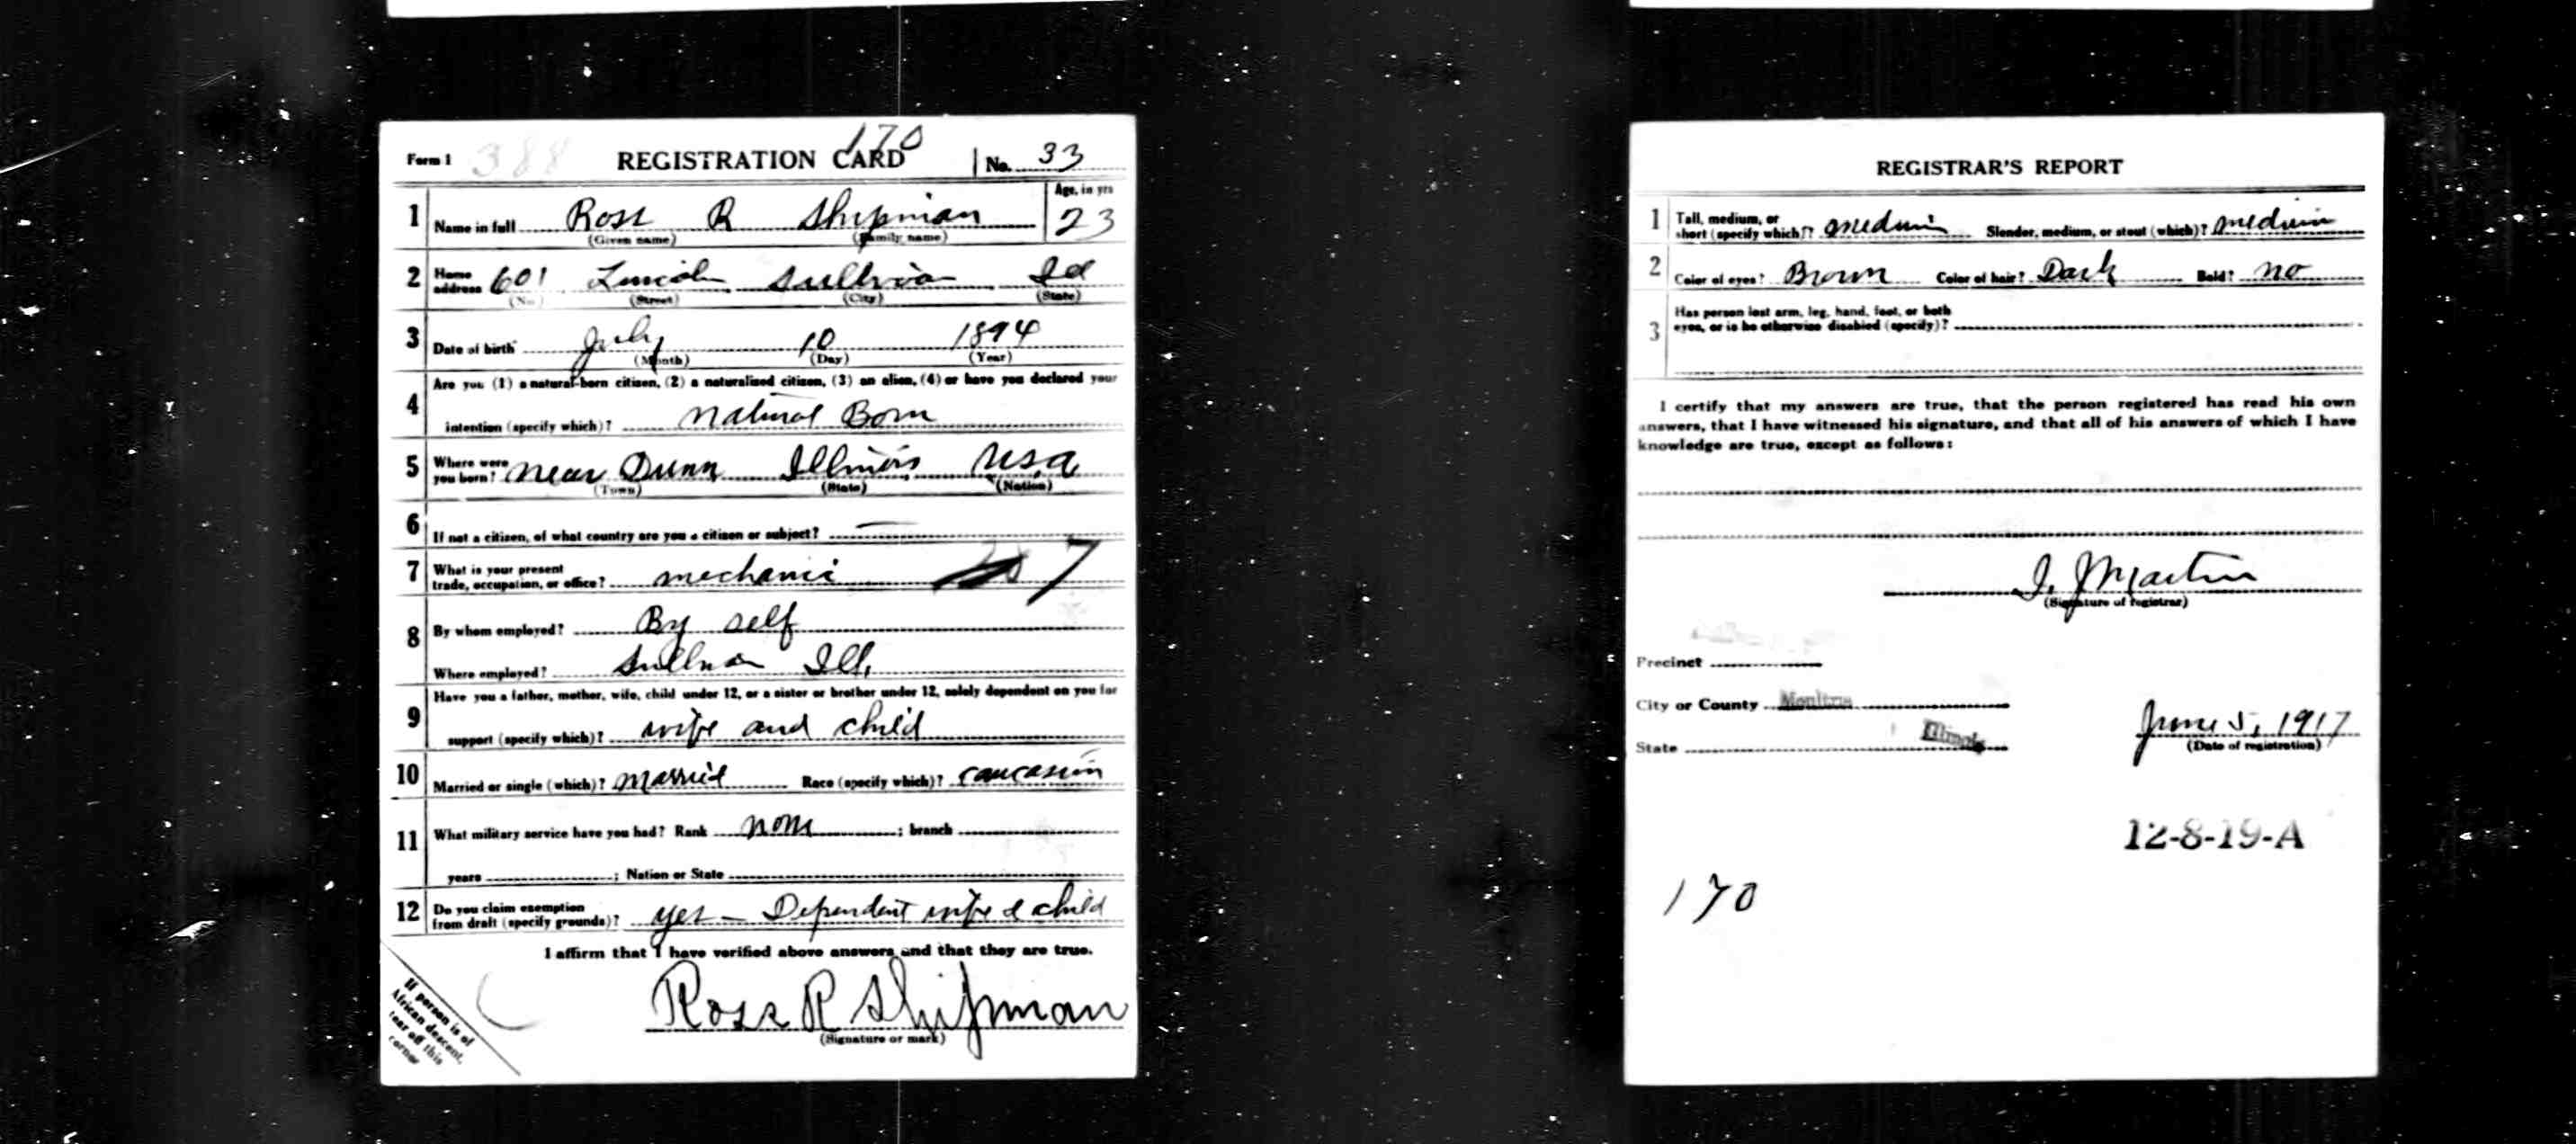 170
Form 1 388 REGISTRATION CARD No. 33
1 Name in full Ross R Shipman Age, in yrs 23
(Given name) (Family name)
2 Home address 601 Lincoln Sullivan Ill
(No.) (Street) (City) (State)
3 Date of birth July 10 1894
(Month) (Day) (Year)
4 Are you (1) a natural-born citizen, (2) a naturalized citizen, (3) an alien, (4) or have you declared your
intention (specify which)? Natural Born
5 Where were you born? near Dunn Illinois USA
(Town) (State) (Nation)
6 If not a citizen, of what country are you a citizen or subject? —
7 What is your present
trade, occupation, or office? mechanic 7
8 By whom employed? By self
Where employed? Sullivan Ill.
9 Have you a father, mother, wife, child under 12, or a sister or brother under 12, solely dependent on you for
support (specify which)? wife and child
10 Married or single (which)? Married Race (specify which)? Caucasian
11 What military service have you had? Rank none ; branch
years ; Nation or State
12 Do you claim exemption
from draft (specify grounds)? yes - Dependent wife & child
I affirm that I have verified above answers and that they are true.
Ross R Shipman
(Signature or mark)
If person is of
African descent,
tear off this
corner
REGISTRAR'S REPORT
1 Tall, medium, or
short (specify which)? medium Slender, medium, or stout (which)? medium
2 Color of eyes? Brown Color of hair? Dark Bald? no
3 Has person lost arm, leg, hand, foot, or both
eyes, or is he otherwise disabled (specify)?
I certify that my answers are true, that the person registered has read his own
answers, that I have witnessed his signature, and that all of his answers of which I have
knowledge are true, except as follows:
I. J Martin
(Signature of registrar)
Precinct
City or County Moultrie
State Illinois
June 5, 1917
(Date of registration)
12-8-19-A
170